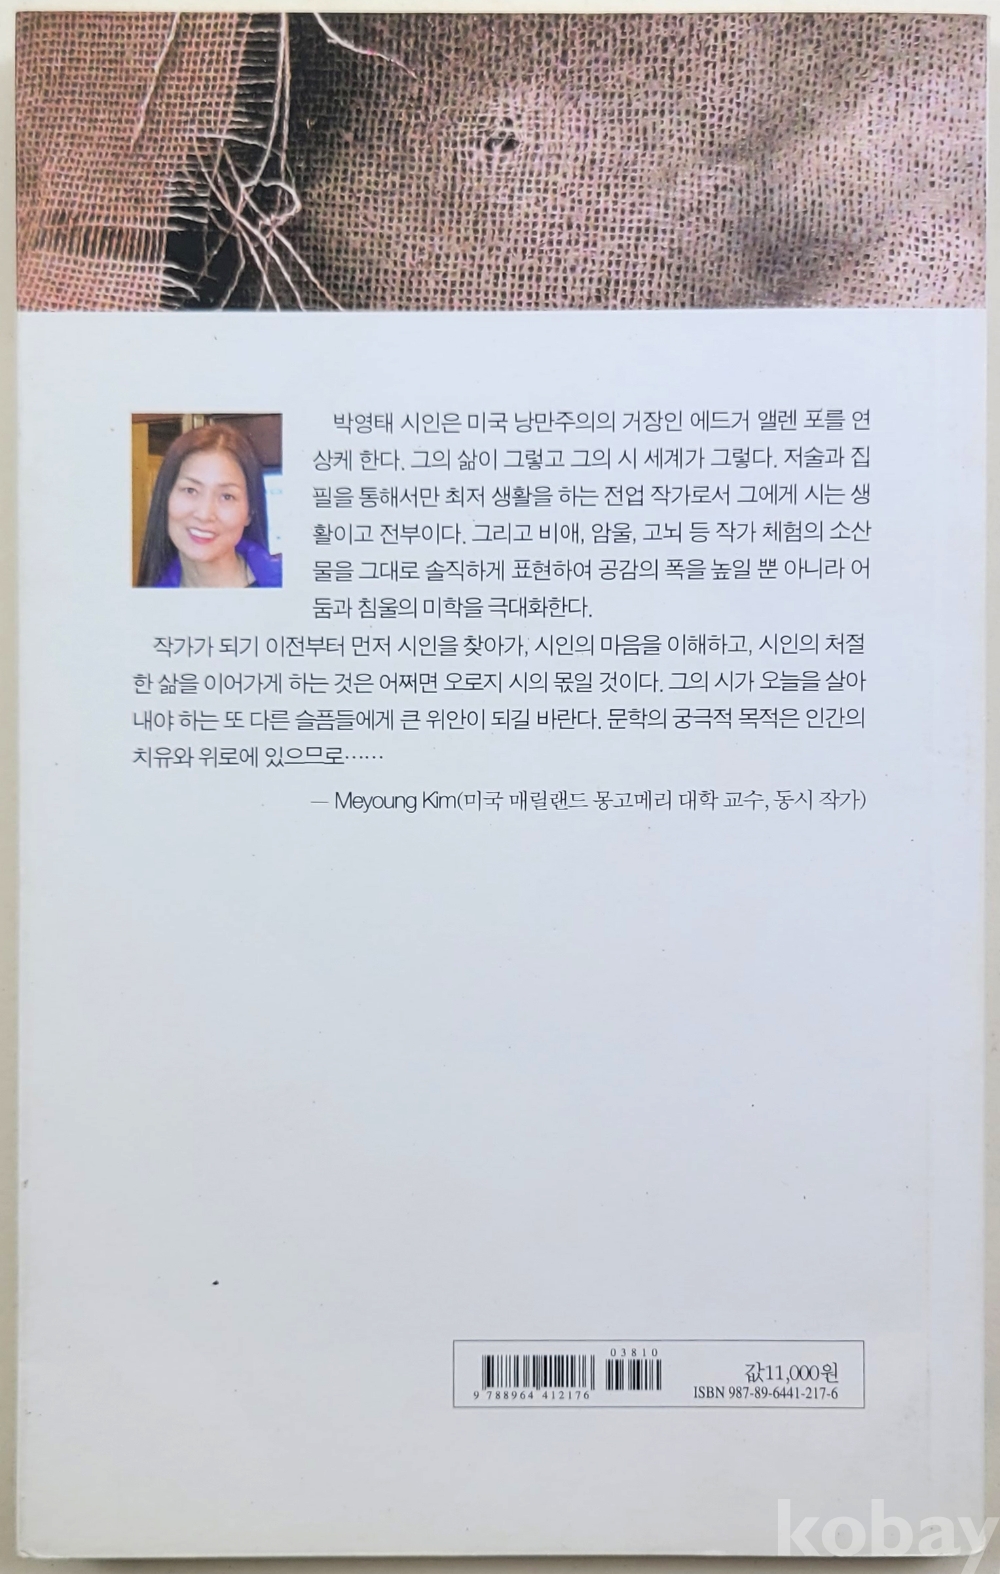 박영태 시인은 미국 낭만주의의 거장인 에드거 앨렌 포를 연
상케 한다. 그의 삶이 그렇고 그의 시 세계가 그렇다. 저술과 집
필을 통해서만 최저 생활을 하는 전업 작가로서 그에게 시는 생
활이고 전부이다. 그리고 비애, 암울, 고뇌 등 작가 체험의 소산
물을 그대로 솔직하게 표현하여 공감의 폭을 높일 뿐 아니라 어
둠과 침울의 미학을 극대화한다.
작가가 되기 이전부터 먼저 시인을 찾아가, 시인의 마음을 이해하고, 시인의 처절
한 삶을 이어가게 하는 것은 어쩌면 오로지 시의 몫일 것이다. 그의 시가 오늘을 살아
내야 하는 또 다른 슬픔들에게 큰 위안이 되길 바란다. 문학의 궁극적 목적은 인간의
치유와 위로에 있으므로……
— Meyoung Kim(미국 매릴랜드 몽고메리 대학 교수, 동시 작가)
03810
9 788964 412176
값11,000원
ISBN 987-89-6441-217-6
kobay